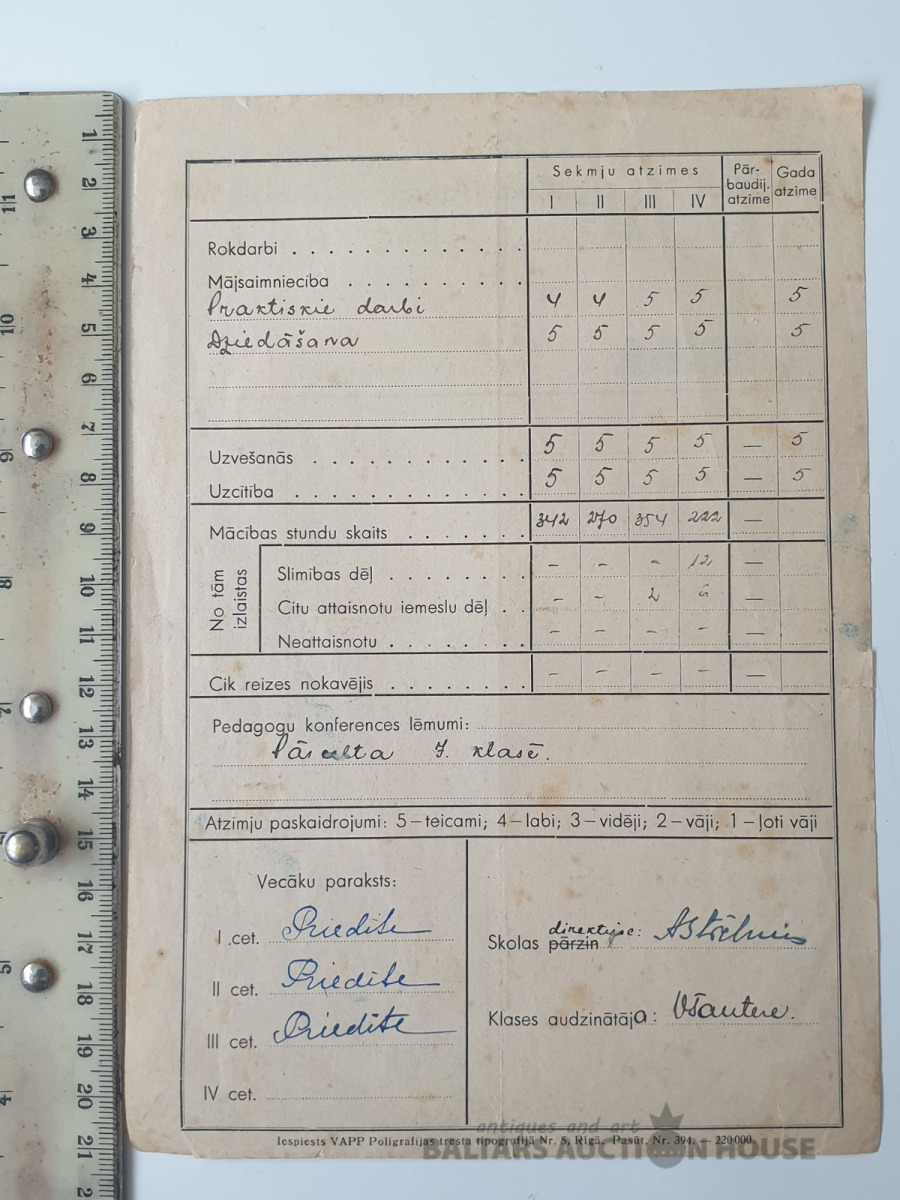 Sekmju atzīmes
Pār-
baudīj.
atzīme
Gada
atzīme
I II III IV
Rokdarbi
Mājsaimniecība
Praktiskie darbi 4 4 5 5 5
Dziedāšana 5 5 5 5 5
Uzvešanās 5 5 5 5 — 5
Uzcītība 5 5 5 5 — 5
Mācības stundu skaits 342 270 354 222 —
No tām
izlaistas
Slimības dēļ - - - 12 —
Citu attaisnotu iemeslu dēļ - - 2 —
Neattaisnotu - - - - —
Cik reizes nokavējis - - - - —
Pedagogu konferences lēmumi:
Pārcelta 7. klasē.
Atzīmju paskaidrojumi: 5—teicami; 4—labi; 3—vidēji; 2—vāji; 1—ļoti vāji
Vecāku paraksts:
I cet. Priedīte
II cet. Priedīte
III cet. Priedīte
IV cet.
direktore:
Skolas pārzin
Klases audzinātāja:
Iespiests VAPP Poligrafijas tresta tipografijā Nr. 5, Rīgā. Pasūt. Nr. 394. — 220000.
antiques and art
BALTARS AUCTION HOUSE
1
2
3
4
5
6
7
8
9
10
11
12
13
14
15
16
17
18
19
20
21
11
10
9
8
5
4